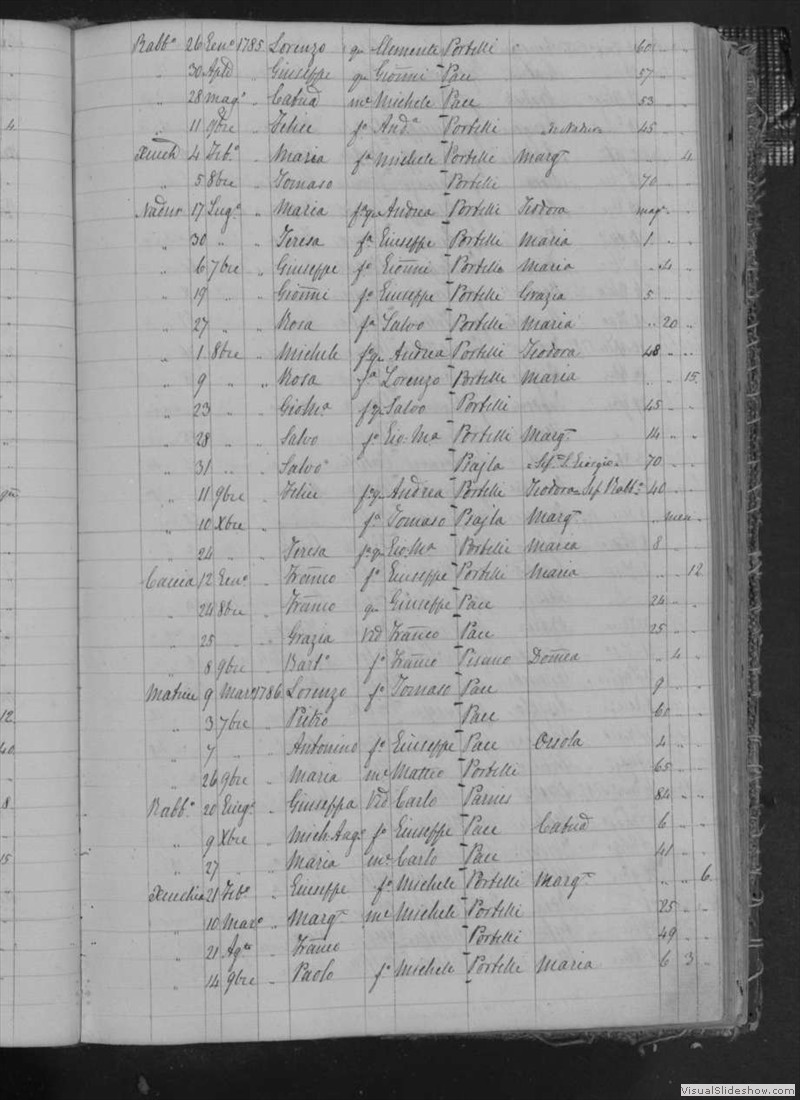 4
Rabb.o 26 Gen.o 1785 Lorenzo qm Clemente Portelli 60
" 30 Aple " Giuseppe qm Gioñni Pace 57
" 28 mag.o " Catnã me Michele Pace 53
" 11 9bre " Felice fo And.a Portelli Nadur 45
Xeuch 4 Feb.o " Maria fa Michele Portelli Marg.ta " " 4
" 5 8bre " Tomaso Portelli 70
Nadur 17 Lug.o " Maria f. qm Andrea Portelli Teodora mag.e
" 30 " " Teresa fa Giuseppe Portelli Maria 1 " "
" 6 7bre " Giuseppe fo Gioñni Portelli Maria " 4 "
" 19 " " Gioñni fo Giuseppe Portelli Grazia 5 " "
" 27 " " Rosa fa Salvo Portelli Maria " 20 "
" 1 8bre " Michele f. qm Andrea Portelli Teodora 48 " "
" 9 " " Rosa fa Lorenzo Portelli Maria " " 15
" 23 " " GioMa f. qm Salvo Portelli 45 " "
" 28 " " Salvo fo Gio Ma Portelli Marg.ta 14 " "
" 31 " " Salvo Bajla Sep. S. Giorgio 70 " "
" 11 9bre " Felice f. qm Andrea Portelli Teodora Sep Rabb.o 40
" 10 Xbre " fa Tomaso Bajla Marg.ta
" 24 " " Teresa f. qm GioMa Portelli Maria 8
Caccia 12 Gen.o " Franco fo Giuseppe Portelli Maria " " 12
" 24 8bre " Franco qm Giuseppe Pace 26 " "
" 25 " " Grazia Vid Franco Pace 25 " "
" 8 9bre " Bart.o fo Franco Pisano Domca " 4 "
Matrice 9 Mar.o 1786 Lorenzo fo Tomaso Pace 9 " "
12
" 3 7bre " Pietro Pace 60 " "
40
" 7 " " Antonino fo Giuseppe Pace Orsola 4 " "
" 26 9bre " Maria me Matteo Portelli 65 " "
8
Rabb.o 20 Giug.o " Giuseppa Vid Carlo Parnis 84 " "
" 9 Xbre " Mich.Ang.o fo Giuseppe Pace Catnã 6 " "
15
" 27 " " Maria me Carlo Pace 41 " "
Xeuchia 21 Feb.o " Giuseppe fo Michele Portelli Marg.ta " " 6
" 10 Mar.o " Marg.ta me Michele Portelli 25 " "
" 21 Ag.to " Franco Portelli 49 " "
" 14 9bre " Paolo fo Michele Portelli Maria 6 3 "
VisualSlideshow.com